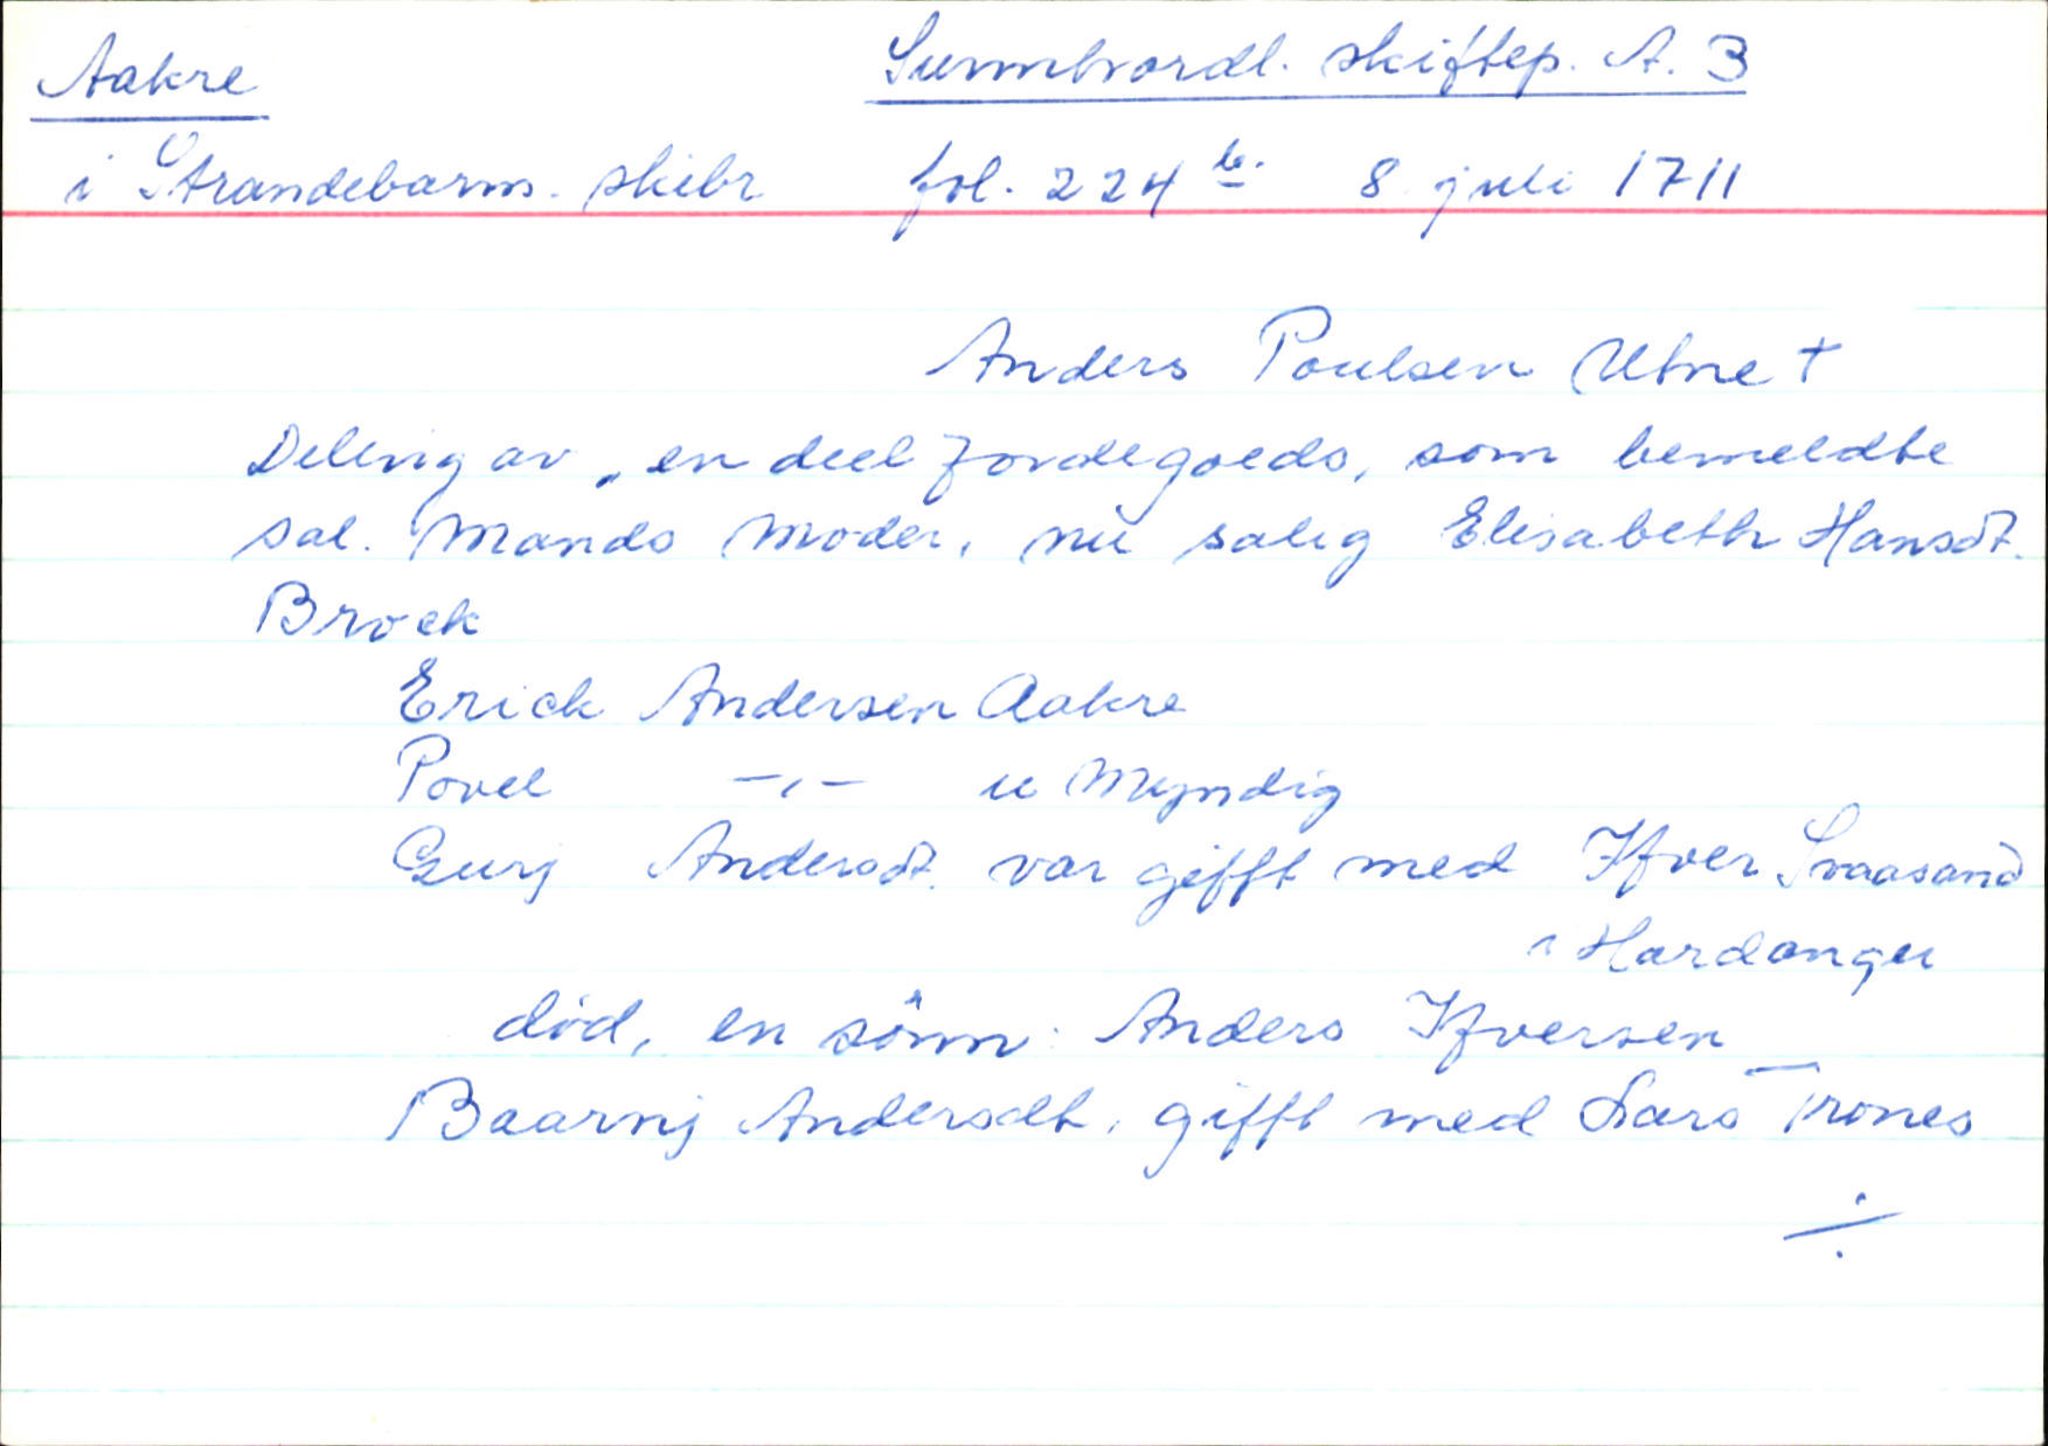 Aakre
Sunnhordl. skiftep. A. 3
i Strandebarms. skibr
fol. 224 b. 8 juli 1711
Anders Poulsen Utne †
Deling av „en deel Jordegoeds, som bemeldte
sal. Mands Moder, nu salig Elisabeth Hansdt.
Brock
Erick Andersen Aakre
Povel —,— u Myndig
Gurj Andersdt. var gifft med Ifver Svaasand
i Hardanger
död, en sönn: Anders Ifversen
Baarnj Andersdt, gifft med Lars Trones
÷